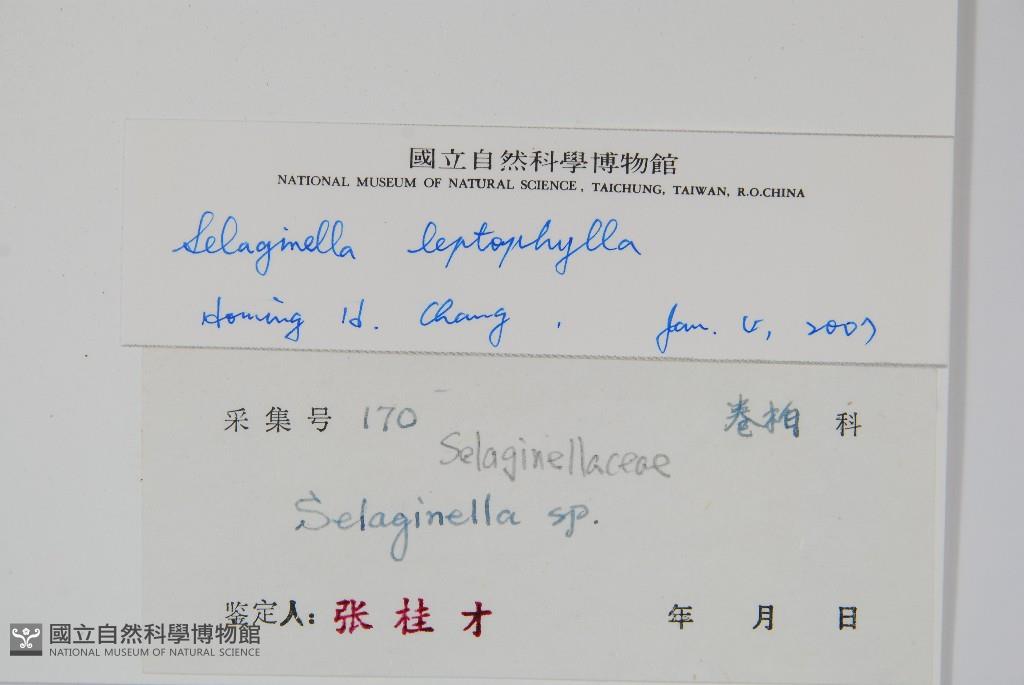 國立自然科學博物館
NATIONAL MUSEUM OF NATURAL SCIENCE, TAICHUNG, TAIWAN, R.O.CHINA
Selaginella leptophylla
Homing H. Chang, Jan. 4, 2007
采集号 170 卷柏 科
Selaginellaceae
Selaginella sp.
鉴定人: 张桂才 年 月 日
國立自然科學博物館
NATIONAL MUSEUM OF NATURAL SCIENCE